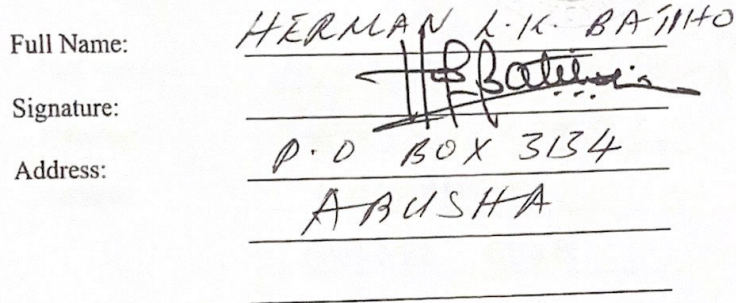 Full Name: HERMAN L.K. BATIHO
Signature:
Address: P.O BOX 3134
ARUSHA